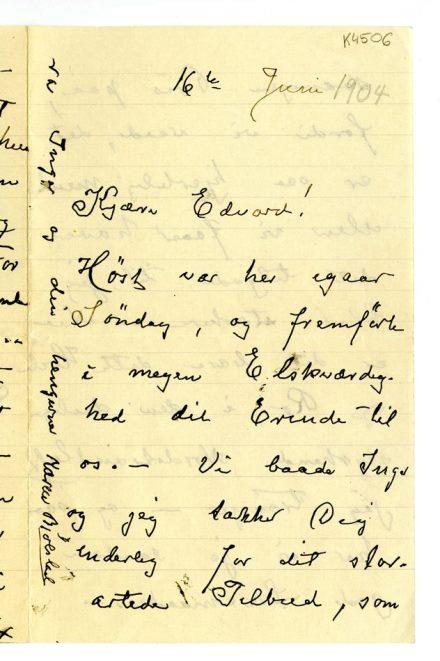 K4506
16de Juni 1904
Kjære Edvard!
Høst var her igaar
Søndag, og fremførte
i megen Elskværdig-
hed dit Erinde til
os. — Vi baade Inger
og jeg takker Dig
inderlig for dit stor-
artede Tilbud, som
fra Inger og din hengivne Karen Bjølstad